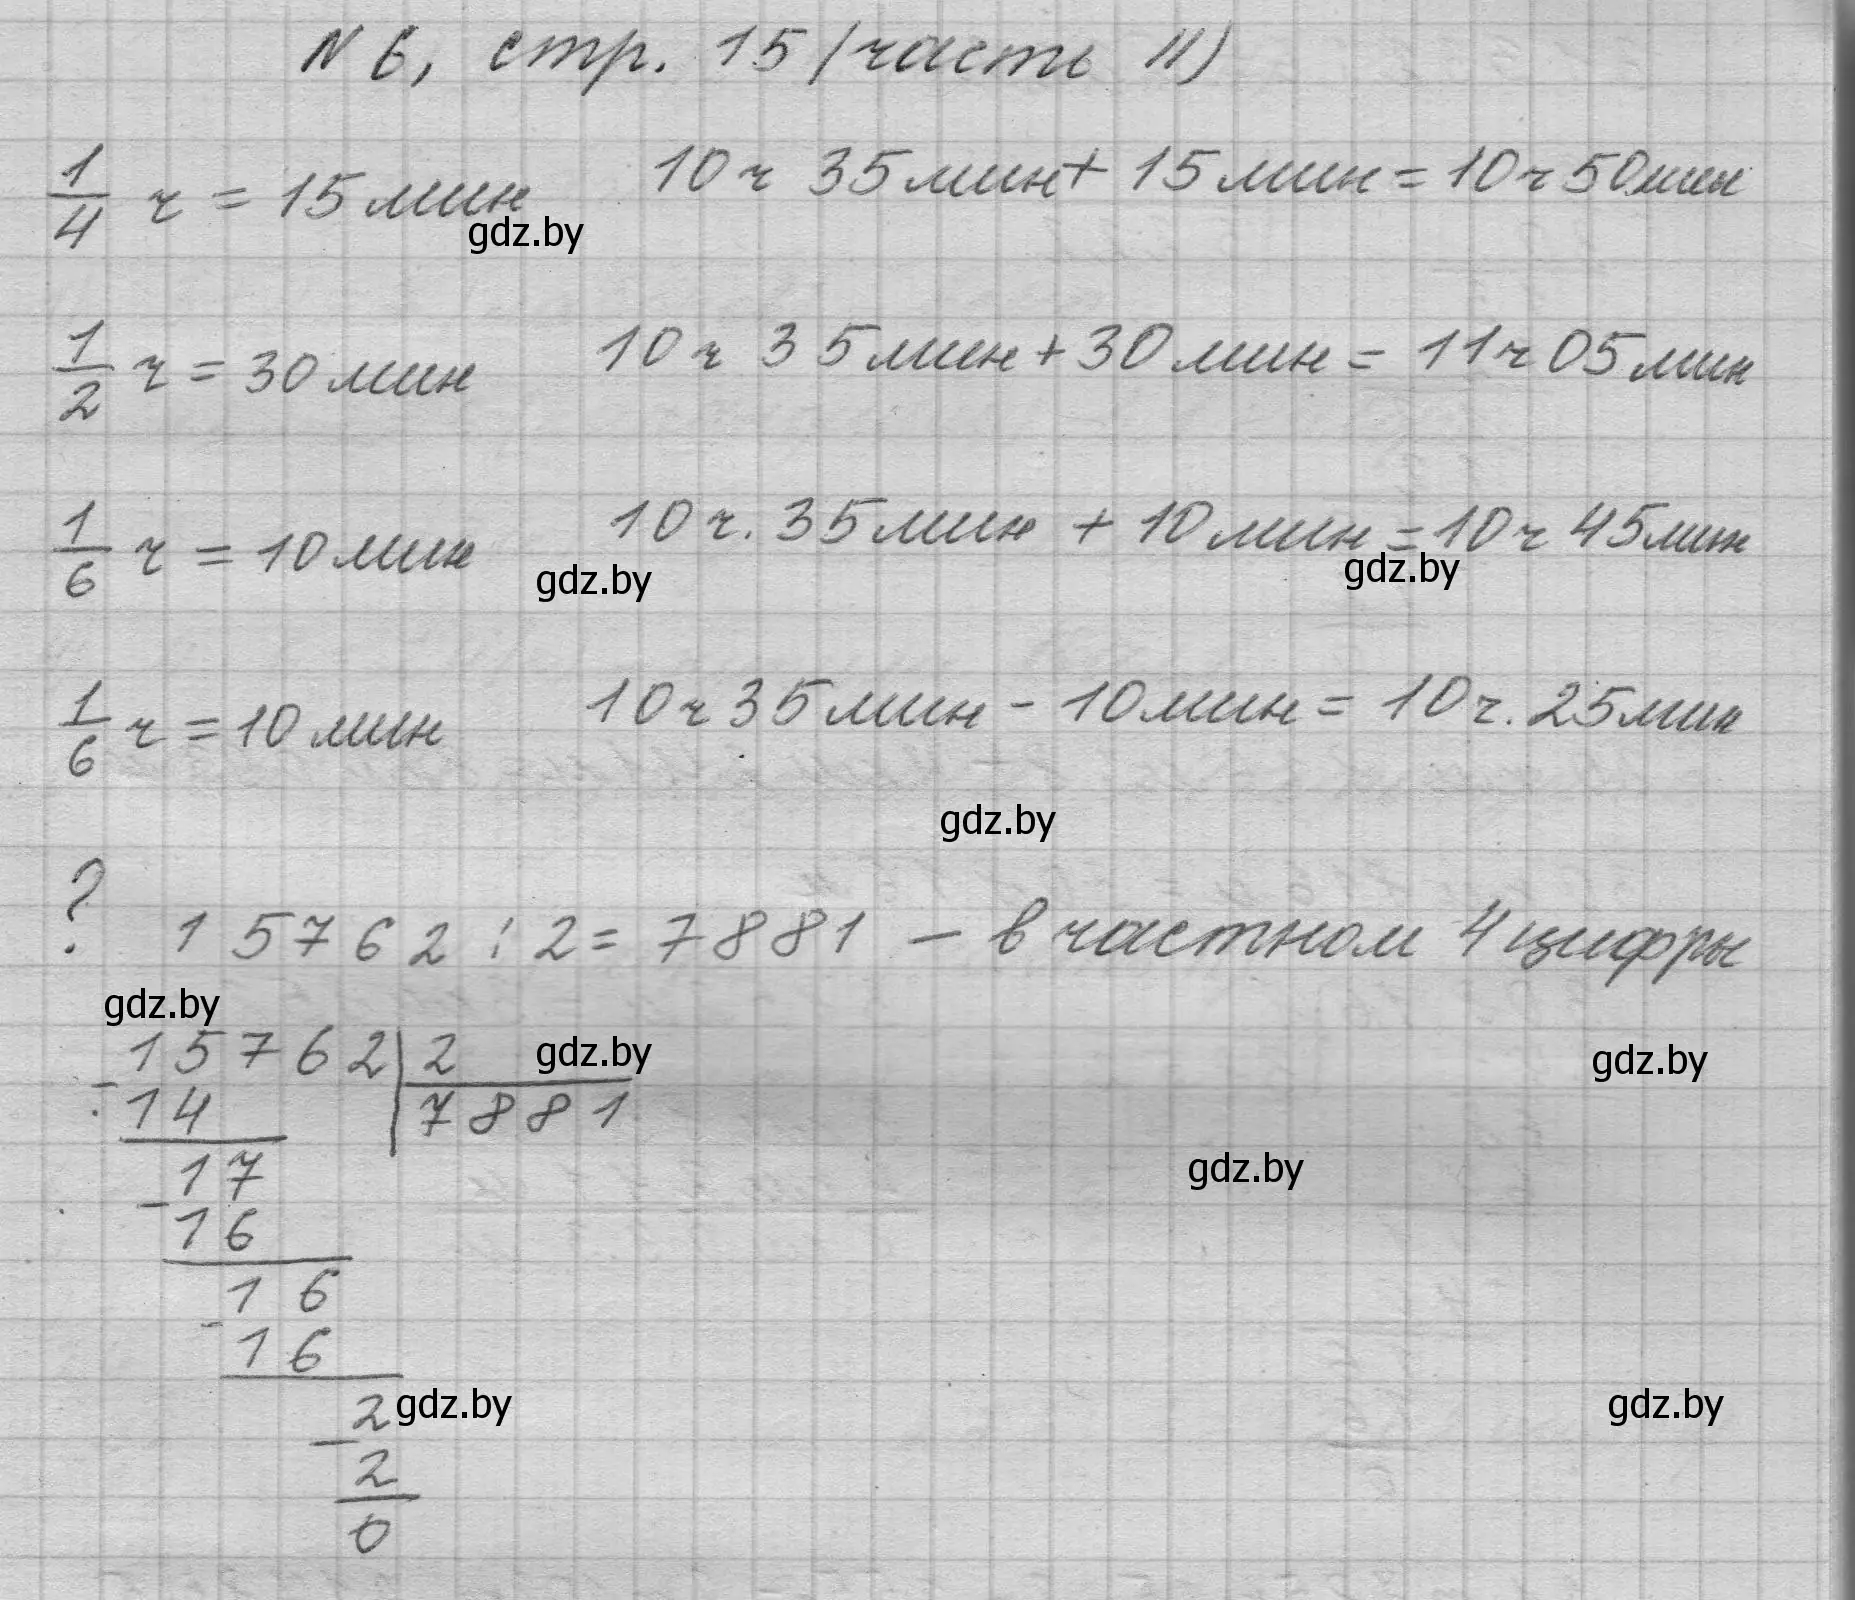 N 6, стр. 15 (часть II)
1/4 ч = 15 мин 10 ч 35 мин + 15 мин = 10 ч 50 мин
gdz.by
1/2 ч = 30 мин 10 ч 35 мин + 30 мин = 11 ч 05 мин
1/6 ч = 10 мин 10 ч. 35 мин + 10 мин = 10 ч 45 мин
gdz.by gdz.by
1/6 ч = 10 мин 10 ч 35 мин - 10 мин = 10 ч. 25 мин
gdz.by
? 15762 : 2 = 7881 – в частном 4 цифры
gdz.by
15762 | 2 gdz.by gdz.by
- 14 7881
17 gdz.by
- 16
16
- 16
2 gdz.by gdz.by
- 2
0